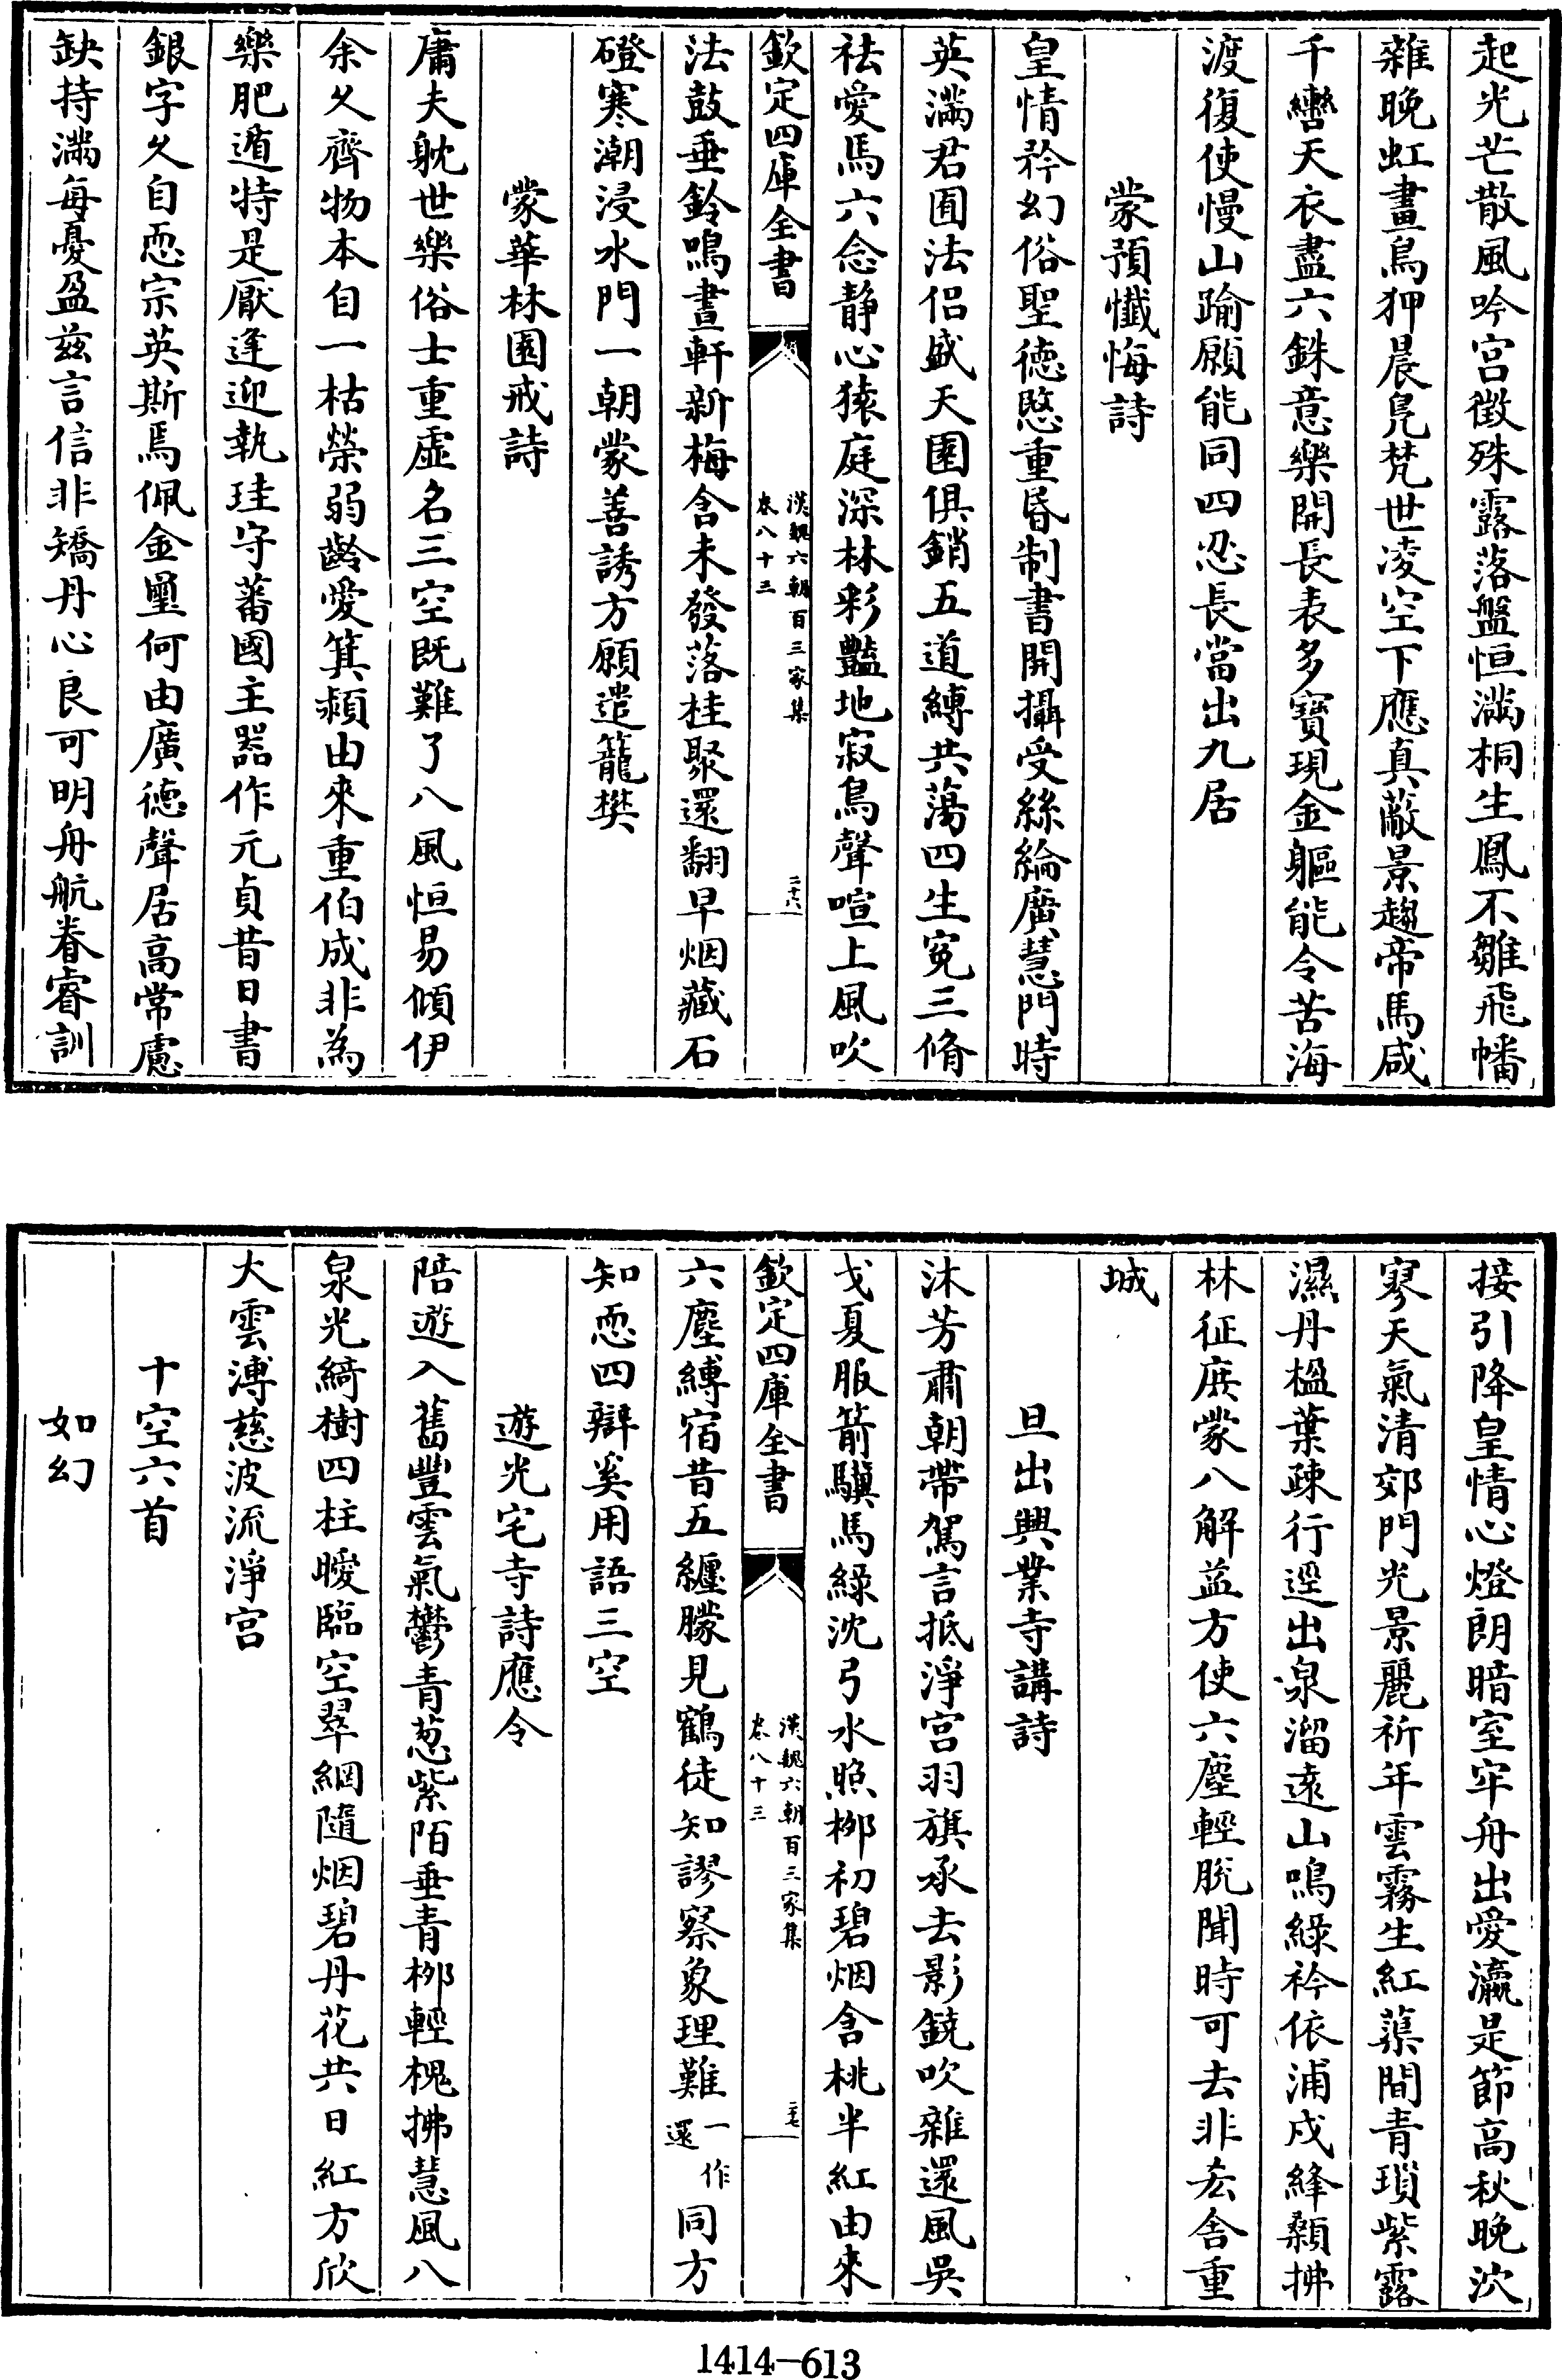 起光芒散風吟宫徵殊露落盤恒滿桐生鳳不雛飛幡
雜晩虹畫鳥狎晨鳬梵世凌空下應真蔽景趨帝馬咸
千轡天衣盡六銖意樂開長表多寳現金軀能令苦海
渡復使慢山踰願能同四忍長當出九居
蒙預懺悔詩
皇情矜幻俗聖徳愍重昏制書開攝受絲綸廣慧門時
英滿君囿法侣盛天園俱銷五道縛共蕩四生寃三脩
祛愛馬六念静心猿庭深林彩豔地寂鳥聲喧上風吹
欽定四庫全書
漢魏六朝百三家集
卷八十三
二十六
法鼓垂鈴鳴晝軒新梅含未發落桂聚還翻早烟藏石
磴寒潮浸水門一朝蒙善誘方願遣籠樊
蒙華林園戒詩
庸夫躭世樂俗士重虚名三空既難了八風恒易傾伊
余久齊物本自一枯榮弱齡愛箕潁由來重伯成非為
樂肥遁特是厭逢迎執珪守蕃國主器作元貞昔日書
銀字久自恧宗英斯焉佩金璽何由廣徳聲居高常慮
缺持滿每憂盈兹言信非矯丹心良可明舟航眷睿訓
接引降皇情心燈朗暗室牢舟出愛瀛是節高秋晩泬
寥天氣清郊門光景麗祈年雲霧生紅蕖間青瑣紫露
濕丹楹葉疎行逕出泉溜遠山鳴綠衿依浦戍絳顙拂
林征庶蒙八解益方使六塵輕脱聞時可去非𠫤舍重
城
旦出興業寺講詩
沐芳肅朝帶駕言抵淨宫羽旗承去影鐃吹雜還風吳
戈夏服箭驥馬緑沈弓水照栁初碧烟含桃半紅由來
欽定四庫全書
漢魏六朝百三家集
卷八十三
二十七
六塵縛宿昔五纏朦見鶴徒知謬察象理難一作還同方
知恧四辯奚用語三空
遊光宅寺詩應令
陪遊入舊豐雲氣鬱青葱紫陌垂青栁輕槐拂慧風八
泉光綺樹四柱曖臨空翠網隨烟碧丹花共日紅方欣
大雲溥慈波流淨宫
十空六首
如幻
1414—613